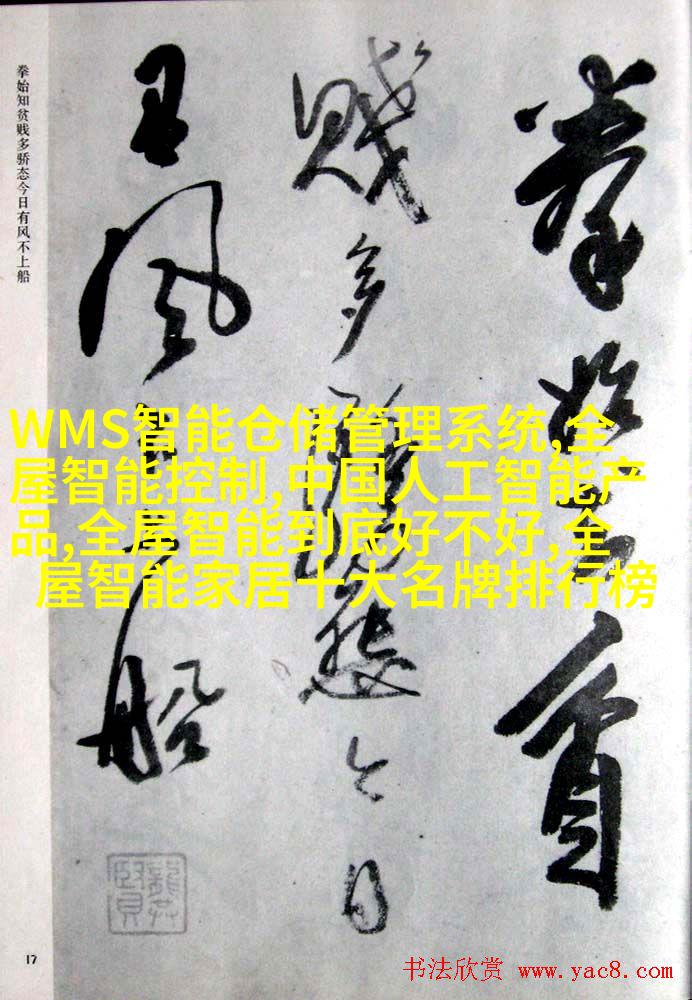 拳始知貧
賤多驕態今日
有風不上船
拳始知贫贱多骄态今日有风不上船
WMS智能仓储管理系统,全
屋智能控制,中国人工智能产
品,全屋智能到底好不好,全
屋智能家居十大名牌排行榜
17
书法欣赏 www.yac8.com